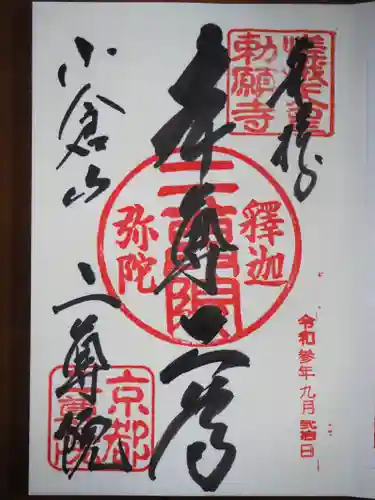 奉拝
嵯峨天皇
勅願寺
釋迦
二尊院
弥陀
本尊
小倉山
二尊院
京都
嵯峨
令和参年九月